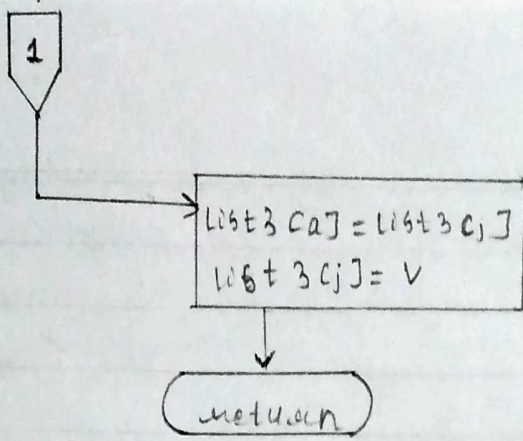 1
list3[a] = list3[j]
list3[j] = v
return